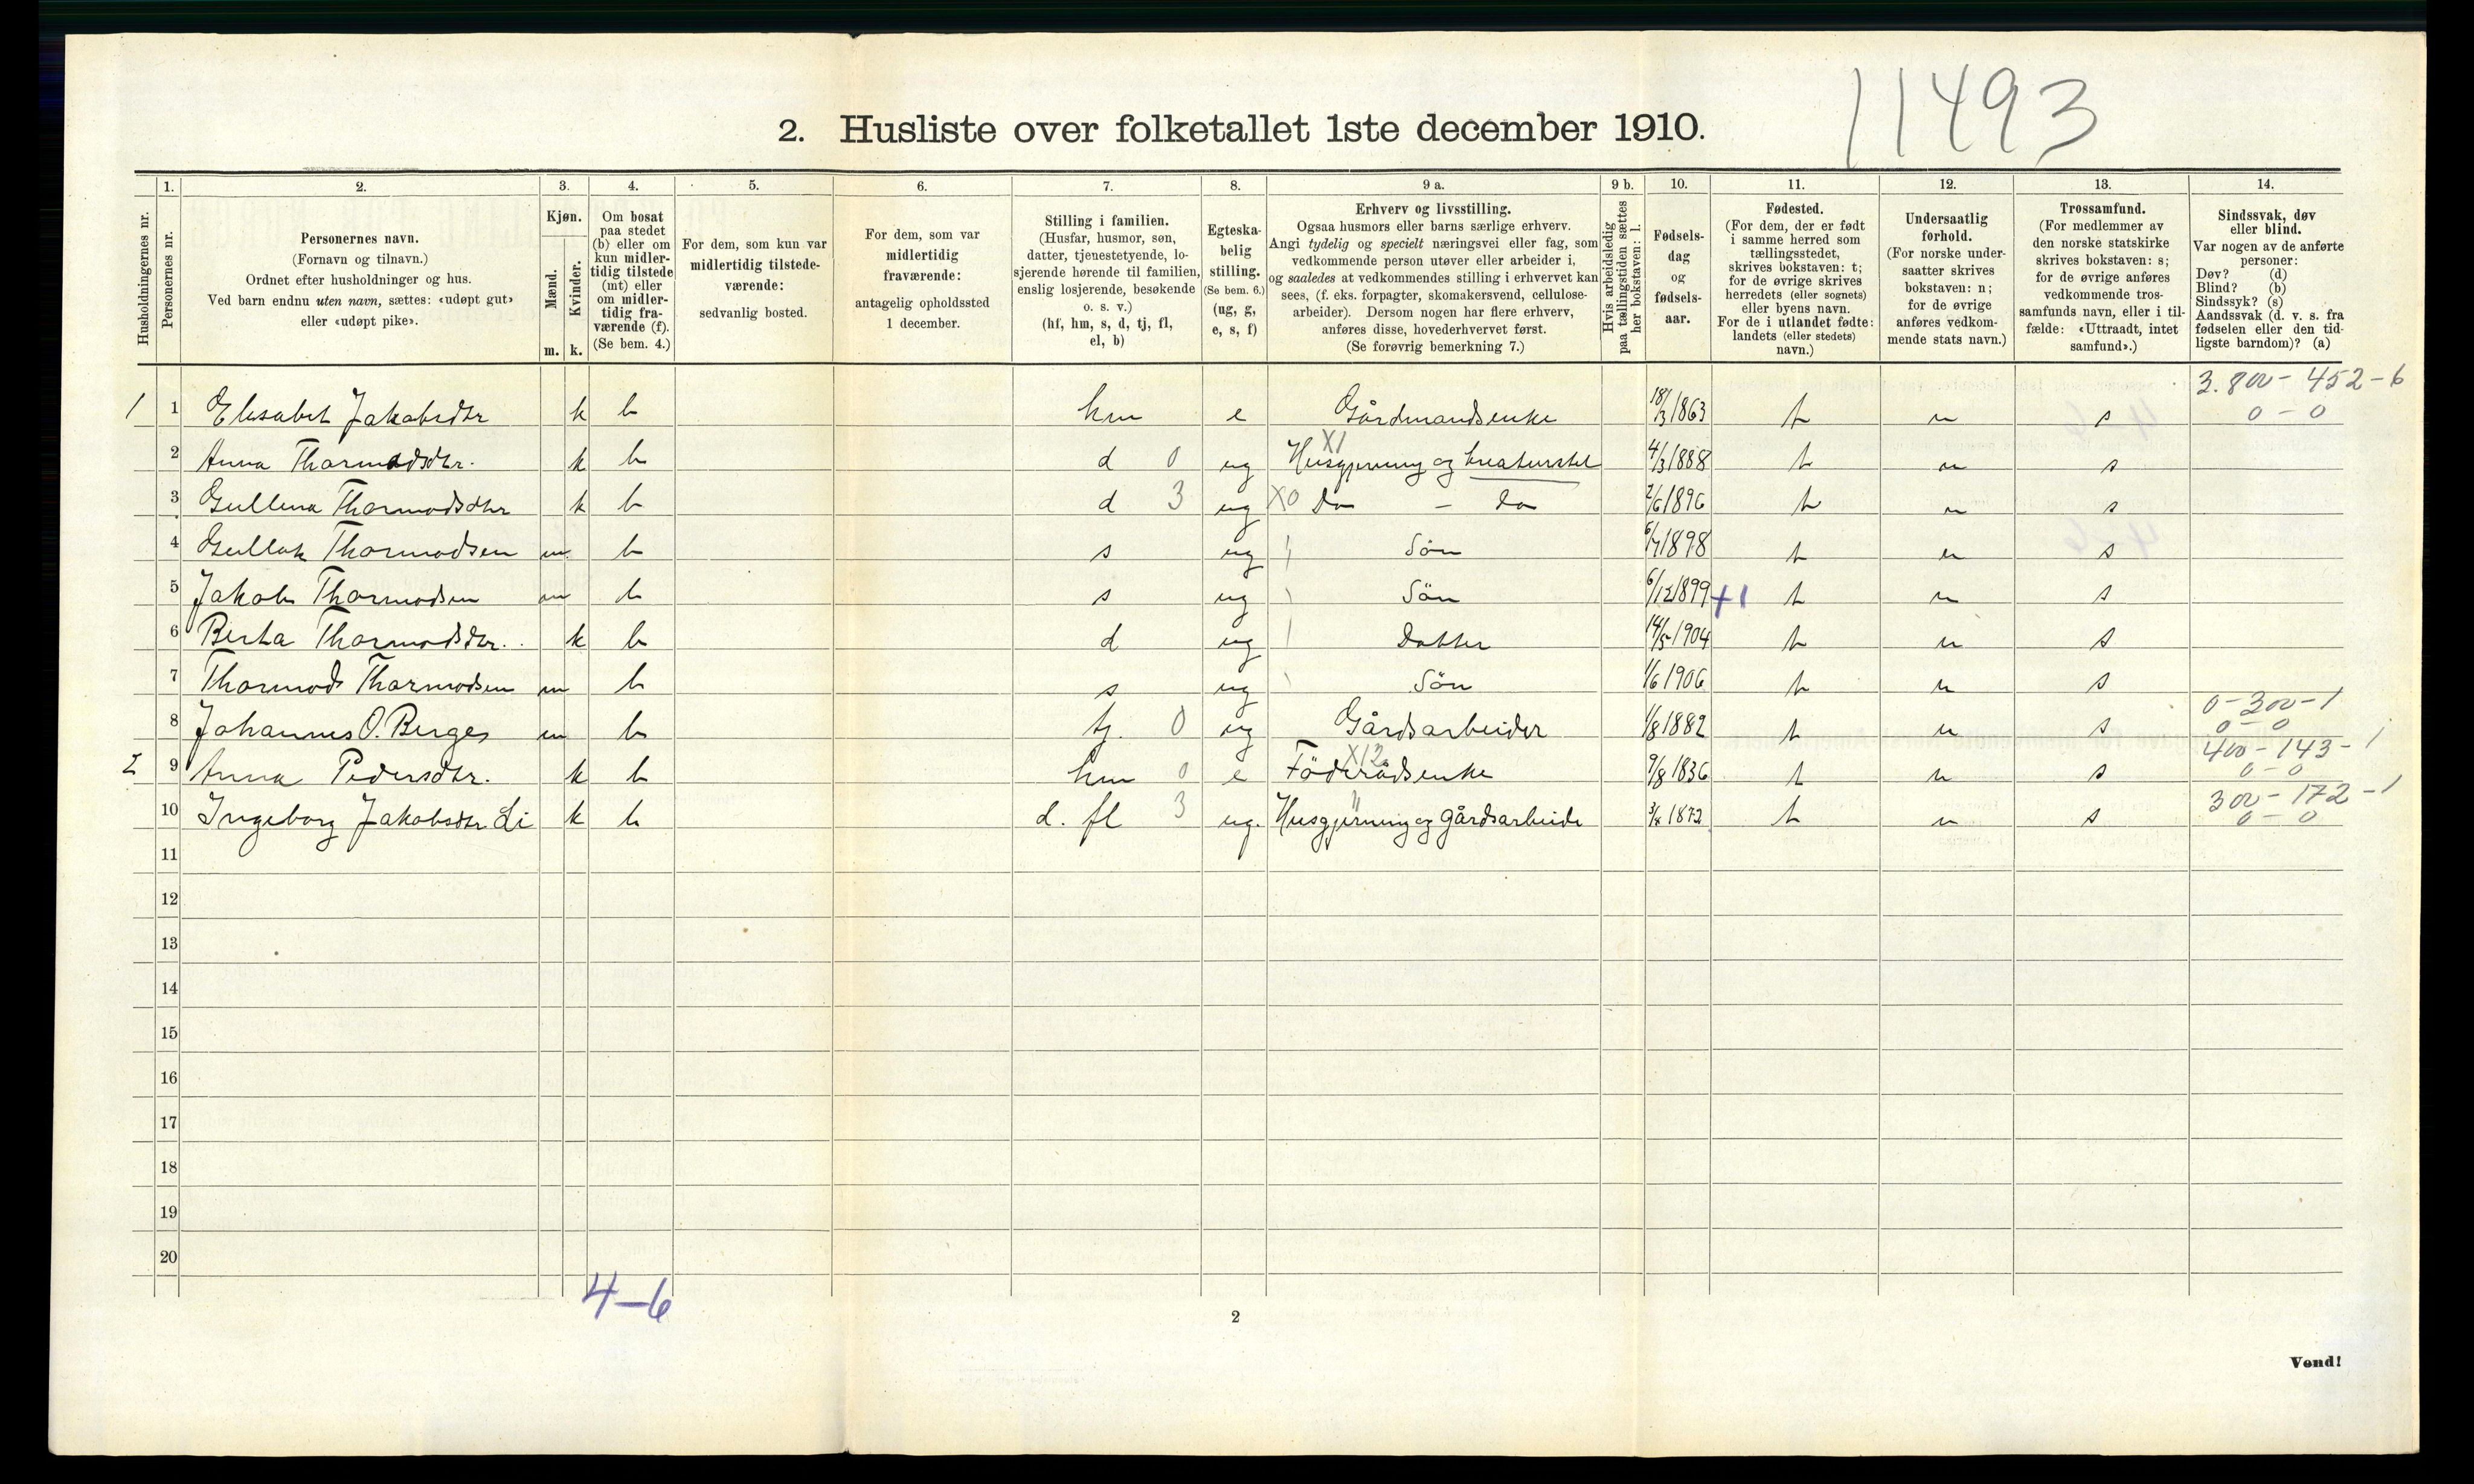 11493
2. Husliste over folketallet 1ste december 1910.
Husholdningernes nr.
1. Personernes nr.
2. Personernes navn.
(Fornavn og tilnavn.)
Ordnet efter husholdninger og hus.
Ved barn endnu uten navn, sættes: «udøpt gut»
eller «udøpt pike».
3. Kjøn.
Mænd. Kvinder.
m. k.
4. Om bosat
paa stedet
(b) eller om
kun midler-
tidig tilstede
(mt) eller
om midler-
tidig fra-
værende (f).
(Se bem. 4.)
5. For dem, som kun var
midlertidig tilstede-
værende:
sedvanlig bosted.
6. For dem, som var
midlertidig
fraværende:
antagelig opholdssted
1 december.
7. Stilling i familien.
(Husfar, husmor, søn,
datter, tjenestetyende, lo-
sjerende hørende til familien,
enslig losjerende, besøkende
o. s. v.)
(hf, hm, s, d, tj, fl,
el, b)
8. Egteska-
belig
stilling.
(Se bem. 6.)
(ug, g,
e, s, f)
9 a. Erhverv og livsstilling.
Ogsaa husmors eller barns særlige erhverv.
Angi tydelig og specielt næringsvei eller fag, som
vedkommende person utøver eller arbeider i,
og saaledes at vedkommendes stilling i erhvervet kan
sees, (f. eks. forpagter, skomakersvend, cellulose-
arbeider). Dersom nogen har flere erhverv,
anføres disse, hovederhvervet først.
(Se forøvrig bemerkning 7.)
9 b. Hvis arbeidsledig
paa tællingstiden sættes
her bokstaven: l.
10. Fødsels-
dag
og
fødsels-
aar.
11. Fødested.
(For dem, der er født
i samme herred som
tællingsstedet,
skrives bokstaven: t;
for de øvrige skrives
herredets (eller sognets)
eller byens navn.
For de i utlandet fødte:
landets (eller stedets)
navn.)
12. Undersaatlig
forhold.
(For norske under-
saatter skrives
bokstaven: n;
for de øvrige
anføres vedkom-
mende stats navn.)
13. Trossamfund.
(For medlemmer av
den norske statskirke
skrives bokstaven: s;
for de øvrige anføres
vedkommende tros-
samfunds navn, eller i til-
fælde: «Uttraadt, intet
samfund».)
14. Sindssvak, døv
eller blind.
Var nogen av de anførte
personer:
Døv? (d)
Blind? (b)
Sindssyk? (s)
Aandssvak (d. v. s. fra
fødselen eller den tid-
ligste barndom)? (a)
3.800 - 452 - 6
1 1 Elisabet Jakobsdtr k b hm e Gårdmandsenke 18/3 1863 t n s 0 - 0
X1
2 Anna Thormodsdtr. k b d 0 ug Husgjerning og kreaturstel 4/3 1888 t n s
3 Gullena Thormodsdtr k b d 3 ug X0 Do - Do 2/6 1896 t n s
4 Gullak Thormodsen m b s ug Sön 6/7 1898 t n s
5 Jakob Thormodsen m b s ug Sön 6/12 1899 +1 t n s
6 Berta Thormodsdtr. k b d ug Datter 14/5 1904 t n s
7 Thormod Thormodsen m b s ug Sön 1/6 1906 t n s
0 - 300 - 1
8 Johannes O. Berge m b tj. 0 ug Gårdsarbeider 1/8 1882 t n s 0 - 0
X12 400 - 143 - 1
2 9 Anna Pedersdtr. k b hm 0 e Föderådsenke 9/8 1836 t n s 0 - 0
300 - 172 - 1
10 Ingeborg Jakobsdtr Li k b d. fl 3 ug. " Husgjerning og gårdsarbeide 3/8 1872 t n s 0 - 0
11
12
13
14
15
16
17
18
19
20
4-6
2
Vend!